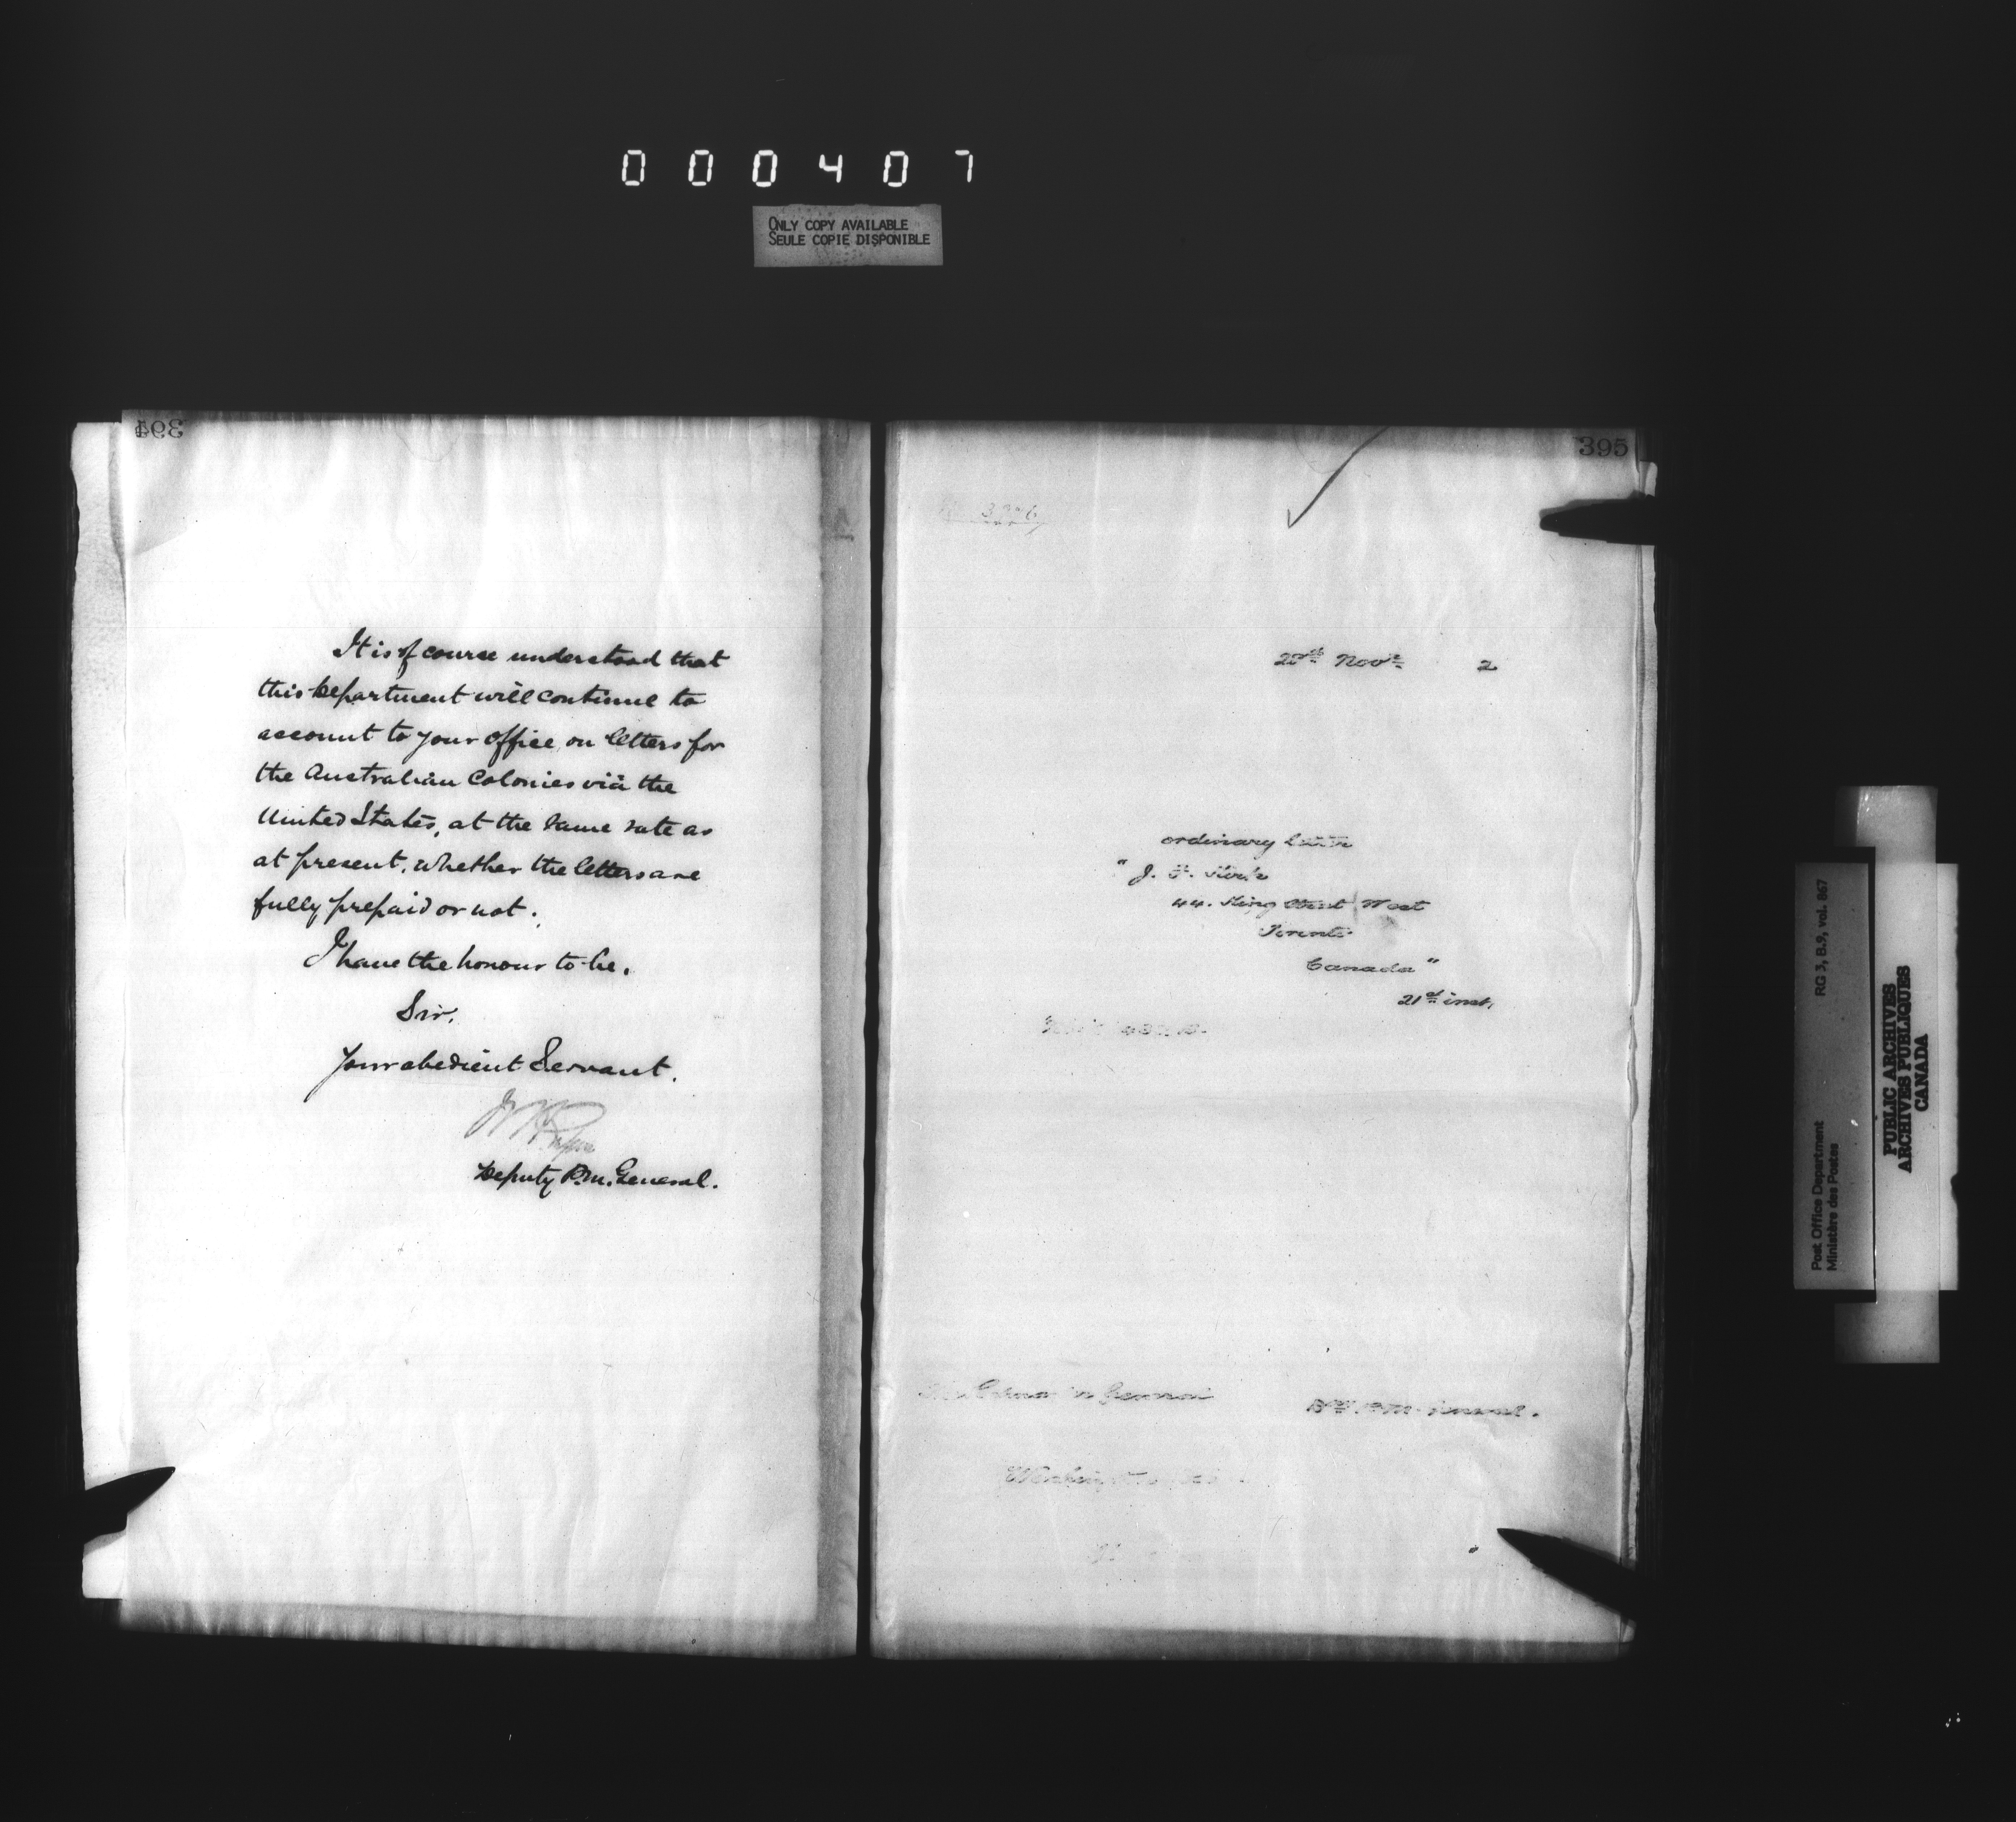 000407
ONLY COPY AVAILABLE
SEULE COPIE DISPONIBLE
394
It is of course understood that
this Department will continue to
account to your Office, on letters for
the Australian Colonies viâ the
United States, at the same rate as
at present, whether the letters are
fully prepaid or not.
I have the honour to be,
Sir,
Your obedient Servant.
Deputy P.M. General.
395
Novr 2
ordinary letter
" J.
44. King Street West
Toronto
Canada "
21st inst,
General.
Post Office Department RG 3, B.9, vol. 867
Ministère des Postes
PUBLIC ARCHIVES
ARCHIVES PUBLIQUES
CANADA